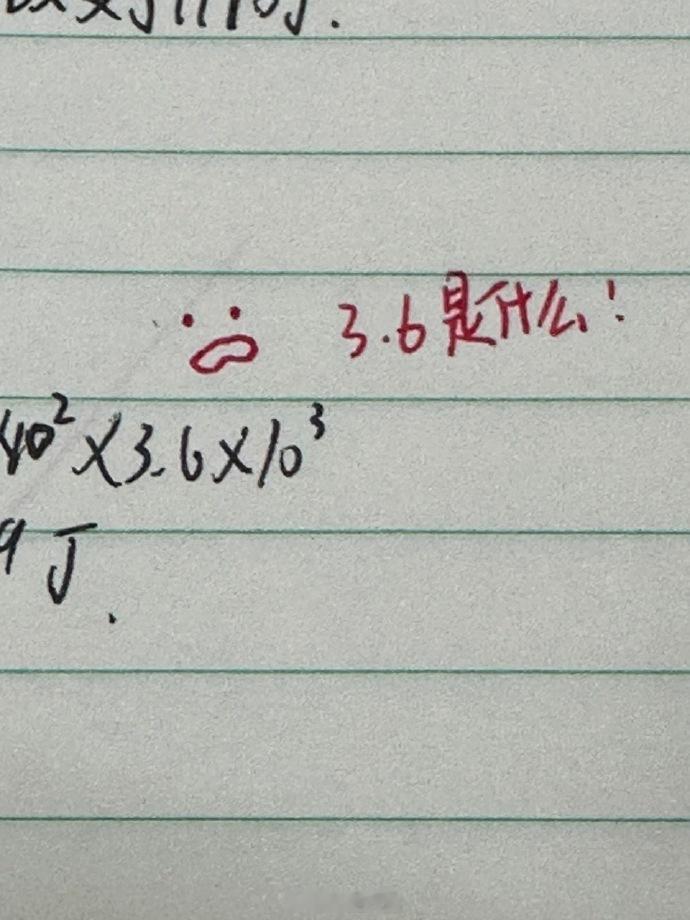 3.6是什么!
40²×3.6×10³
9 J.